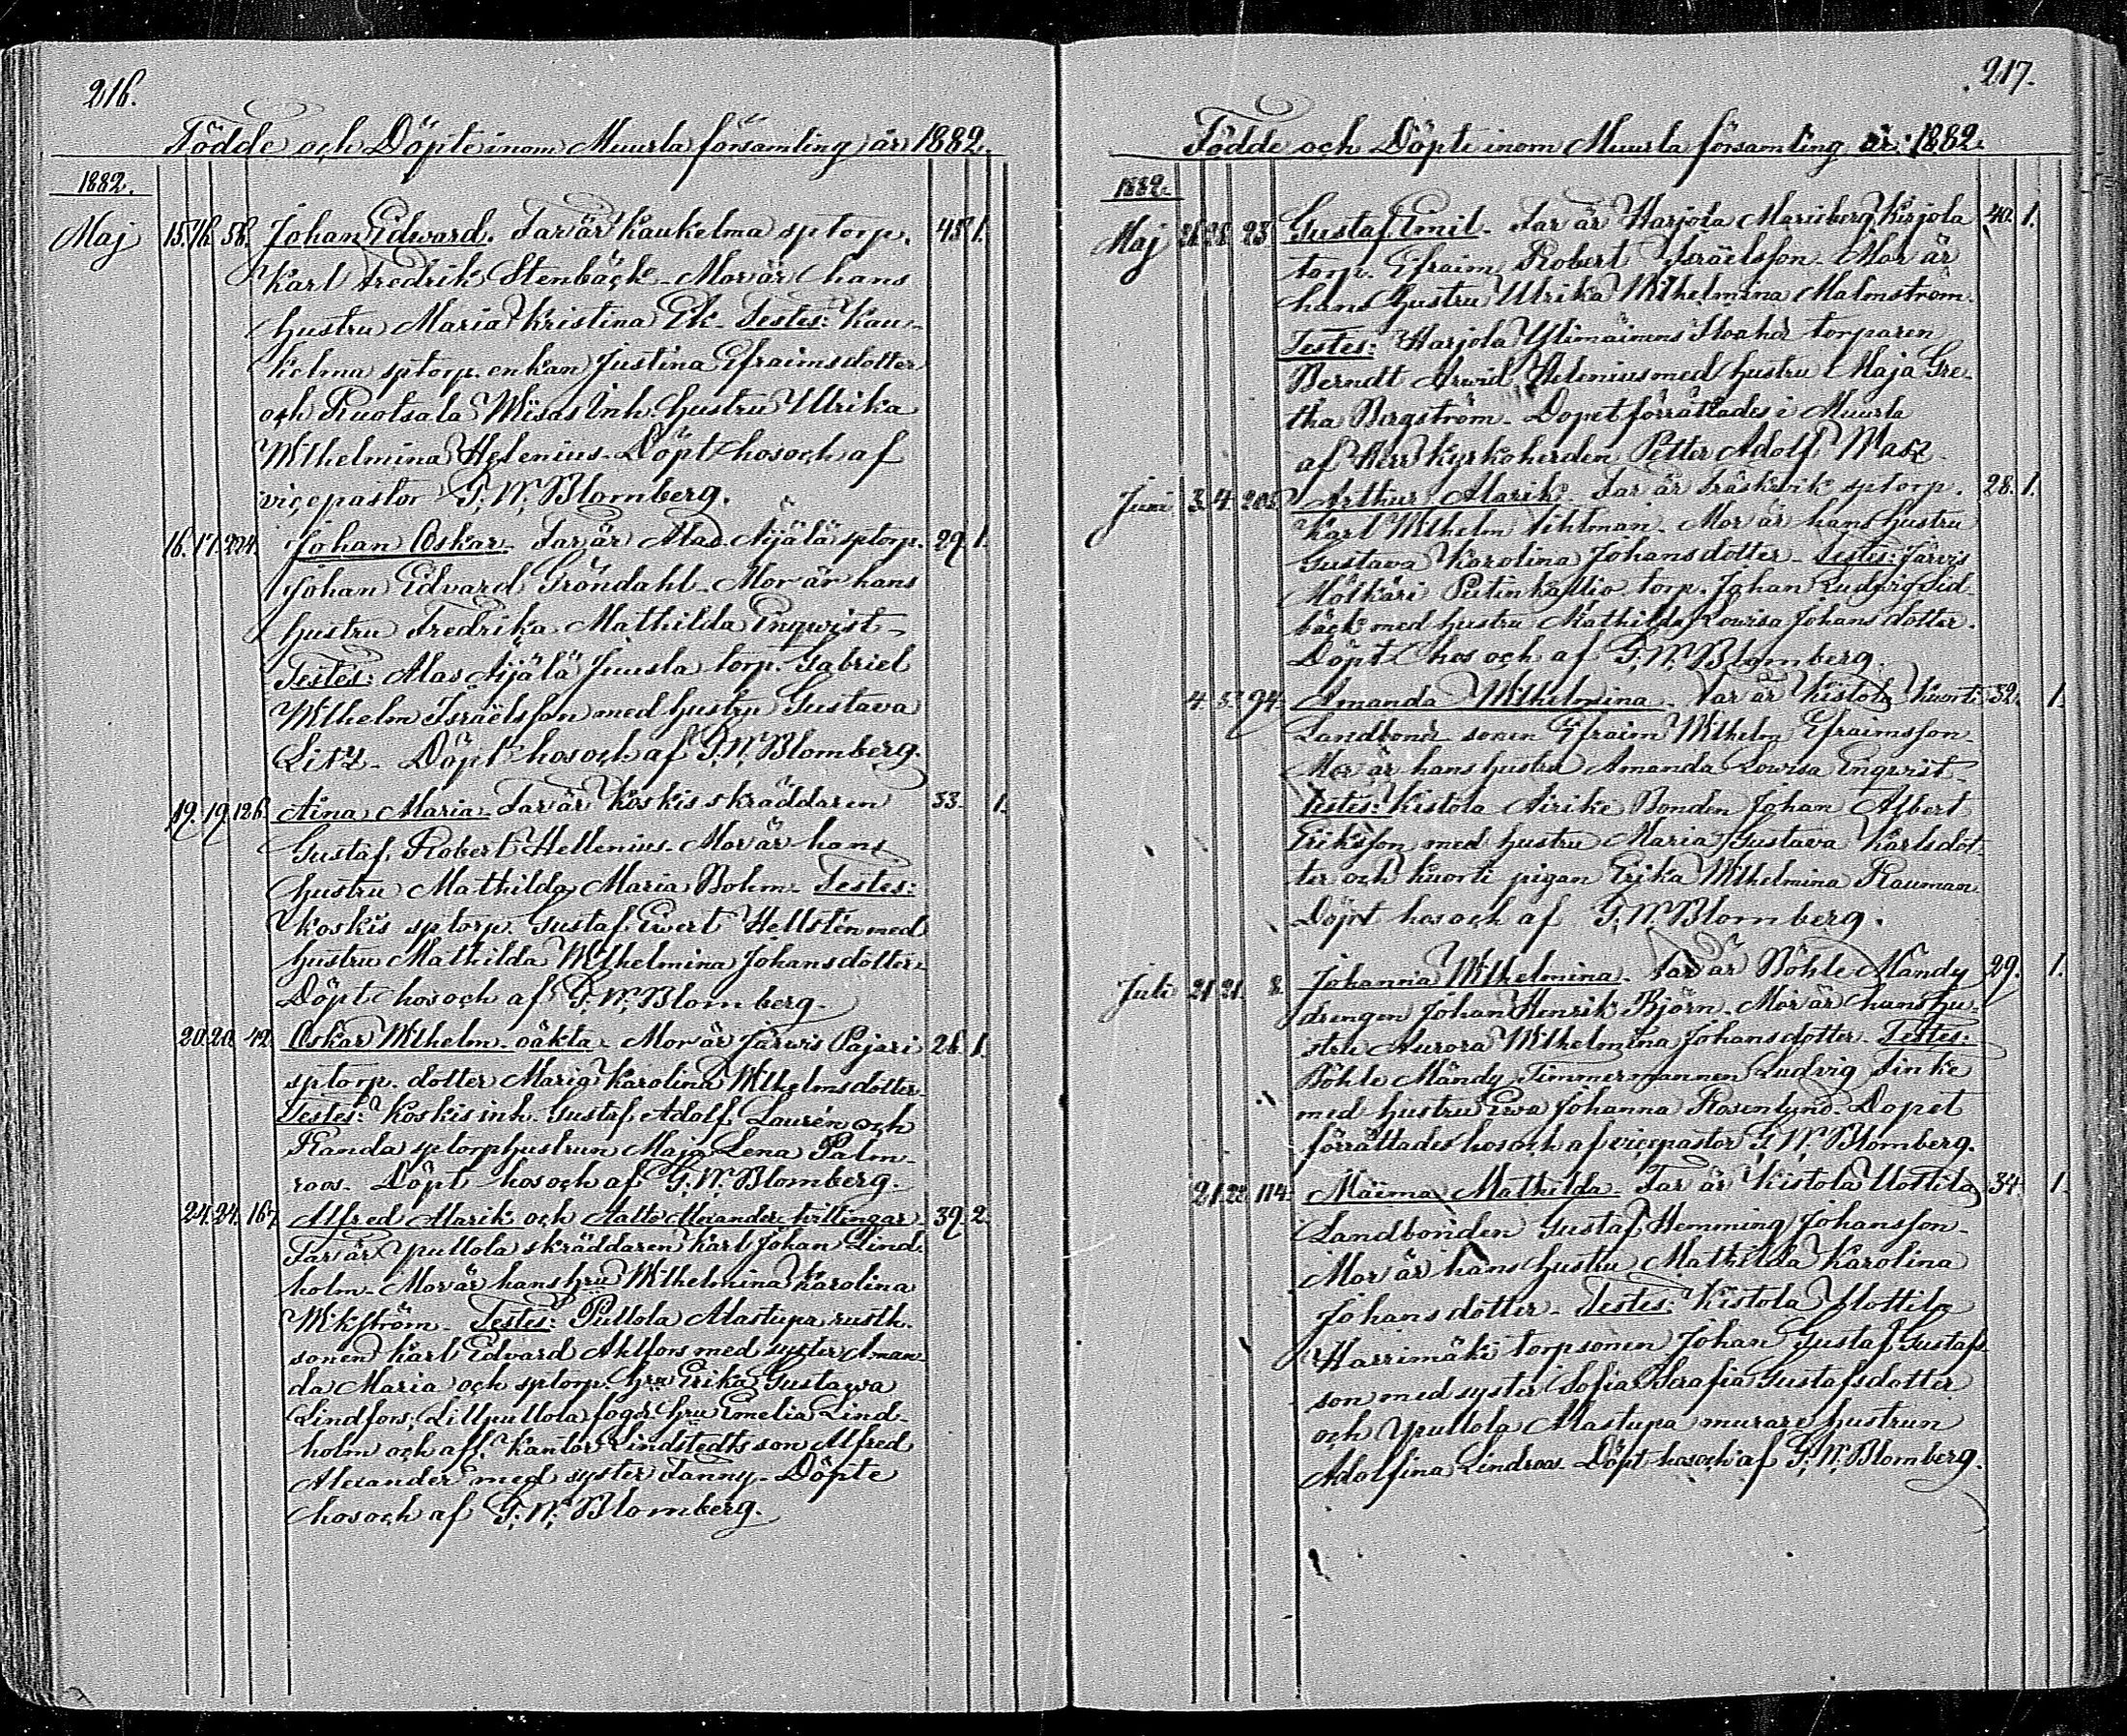 216.
Födde och Döpte inom Muurla församling år 1882.
1882.
Maj 15. 16. 56. Johan Edward. Far är Kaukelma sptorp. 45. 1.
Karl Fredrik Stenbäck. Mor är hans
hustru Maria Kristina Ek. Testes: Kau-
kelma sptorp. enkan Justina Efraimsdotter
och Ruotsala Wisas Inh. hustru Ulrika
Wilhelmina Helenius. Döpt hos och af
vicepastor G. W. Blomberg.
16. 17. 224. Johan Oskar. Far är Alas Äijälä sptorp. 29. 1.
Johan Edvard Gröndahl. Mor är hans
hustru Fredrika Mathilda Enqwist.
Testes: Alas Äijälä Juusla torp. Gabriel
Wilhelm Israëlsson med hustru Gustava
Litz. Döpt hos och af G. W. Blomberg.
19. 19. 126. Aina Maria. Far är Koskis skräddaren 33. 1.
Gustaf Robert Hellenius. Mor är hans
hustru Mathilda Maria Bohm. Testes:
Koskis sptorp. Gustaf Ewert Hellstén med
hustru Mathilda Wilhelmina Johansdotter.
Döpt hos och af G. W. Blomberg.
20. 20. 42. Oskar Wilhelm. oäkta. Mor är Järwis Pajari 26. 1.
sptorp. dotter Maria Karolina Wilhelmsdotter.
Testes: Koskis inh. Gustaf Adolf Laurén och
Randa sptorphustrun Maja Lena Palm-
roos. Döpt hos och af G. W. Blomberg.
24. 24. 167. Alfred Alarik och Aalto Alexander tvillingar. 39. 2.
Far är Ypullola skräddaren Karl Johan Lind-
holm. Mor är hans hru Wilhelmina Karolina
Wikström. Testes: Pullola Alastupa rusth.
sonen Karl Edvard Ahlfors med syster Aman-
da Maria och sptorp. hru Erika Gustawa
Lindfors, Lillpullola fogd. hru Emelia Lind-
holm och afl. Kantor Lindstedts son Alfred
Alexander med syster Fanny. Döpte
hos och af G. W. Blomberg.
217.
Födde och Döpte inom Muurla församling år 1882.
1882.
Maj 21. 28. 23. Gustaf Emil. Far är Harjola Marisberg Kirjola 40. 1.
torp. Efraim Robert Israëlsson. Mor är
hans hustru Ulrika Wilhelmina Malmström.
Testes: Harjola Ylimäinens torparen
Berndt Arwid Helenius med hustru Maja Gre-
tha Bergström. Dopet förrättades i Muurla
af Herr Kyrkoherden Petter Adolf
Juni 3. 4. 205. Arthur Alarik. Far är Träskwik sptorp. 28. 1.
Karl Wilhelm Fihlman. Mor är hans hustru
Gustava Karolina Johansdotter. Testes: Järvis
Mölkäri torp. Johan Ludvig
bäck med hustru Mathilda Lowisa Johansdotter.
Döpt hos och af G. W. Blomberg.
4. 5. 94. Amanda Wilhelmina. Far är Kistola Kuorti 32. 1.
Landbond sonen Efraim Wilhelm Efraimsson.
Mor är hans hustru Amanda Lowisa Enqvist.
Testes: Kistola Airike Bonden Johan Albert
Eriksson med hustru Maria Gustava Karlsdot-
ter och Kuorti pigan Erika Wilhelmina Rauman.
Döpt hos och af G. W. Blomberg.
Juli 21. 21. 8. Johanna Wilhelmina. Far är Böhle Mändy 29. 1.
drengen Johan Henrik Björn. Mor är hans hu-
stru Aurora Wilhelmina Johansdotter. Testes:
Böhle Mändy Timmermannen Ludvig Sinke
med hustru Ewa Johanna Rosenlund. Dopet
förrättades hos och af vicepastor G. W. Blomberg.
21. 22. 114. Maima Mathilda. Far är Kistola Uottila 34. 1.
Landbonden Gustaf Hemming Johansson.
Mor är hans hustru Mathilda Karolina
Johansdotter. Testes: Kistola Uottila
Harrimäki torpsonen Johan Gustaf Gustafs-
son med syster Sofia Serafia Gustafsdotter
och Ypullola Alastupa murare hustrun
Adolfina Lindroos. Döpt hos och af G. W. Blomberg.